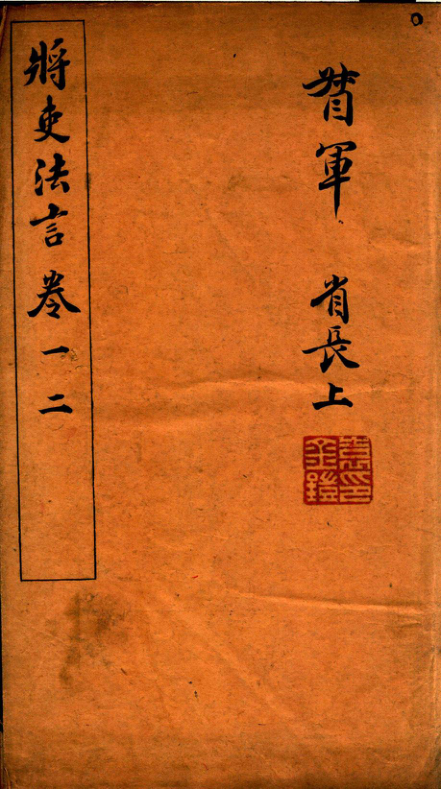 督軍 省長上
將吏法言 卷一二